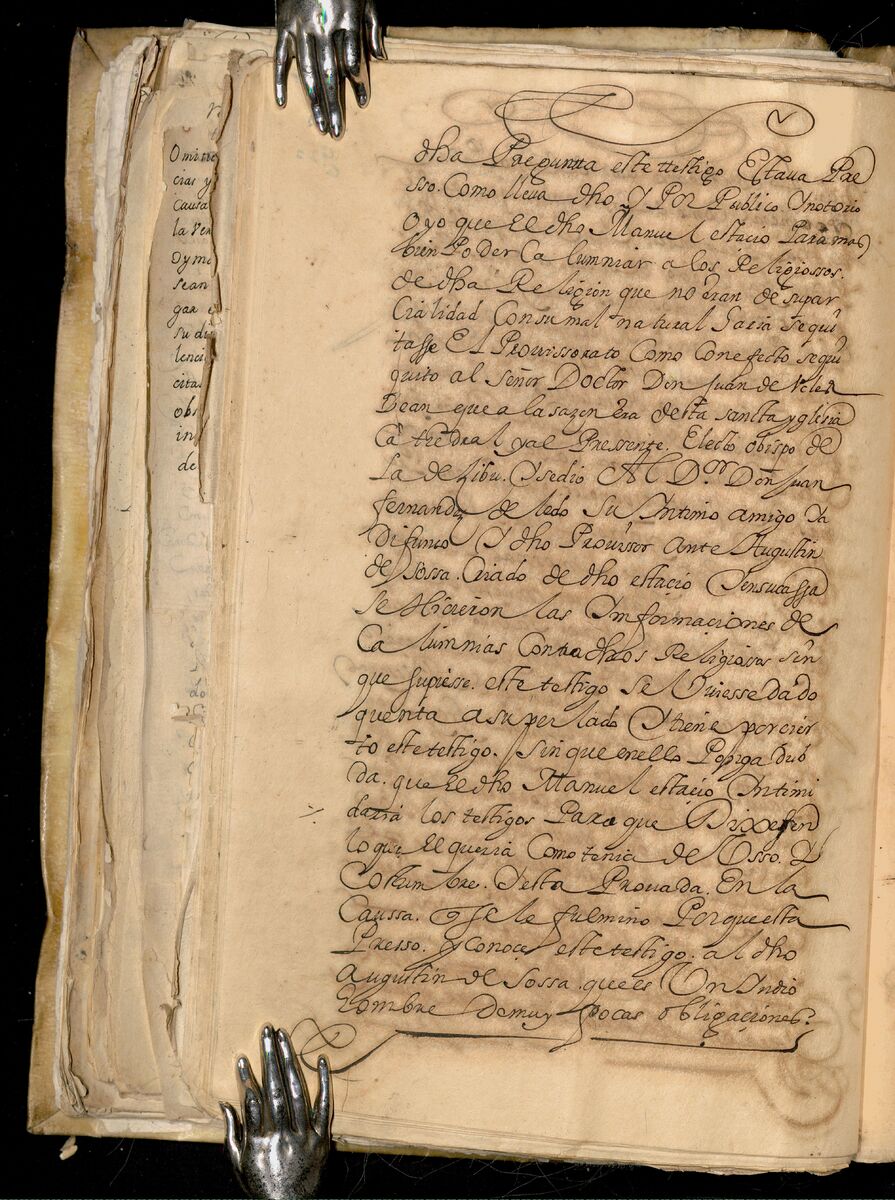 Omitie
cias y
Causa
la Ver
oymo
sean
gar
su di
lenci
citas
obs
in
de
dha Pregunta este testigo Estaua Pre
sso. Como lleua dho Y Por Publico Ynotorio
oyo que El dho Manuel estacio Para mas
bien Poder Calumniar a los Religiossos.
de dha Religion que no eran de su par
Cialidad Con su mal natural haria se qui
tasse El Prouissorato Como Con efecto se qui
quito al señor Doctor Don Juan de Velez
Dean que a la sazon era desta sancta yglesia
Cathedral yal Pressente. Electo obispo de
La de Zibu. Y se dio Al D.or Don Juan
fernandz de ledo Su Yntimo amigo Ya
Difunto Y dho Prouissor Ante Augustin
de Sossa. Criado de dho estacio Yensucassa
Se Hicieron las Ynformaciones de
Calumnias Contra dhos Religiosos sin
que supiesse. este testigo se Vuiesse dado
quenta a su perlado Y tiene por cier
to este testigo. Sin que en ello Ponga Dub
da. que El dho Manuel estacio Yntimi
daria los testigos Para que Dixessen
lo que El queria Como tenia de Vsso. Y
Costumbre. Y esta Prouada. En la
Caussa. q Se le fulmino Por que esta
Presso. y conoce este testigo. al dho
Augustin de Sossa que es Vn Yndio
Hombre De muy pocas obligaciones.